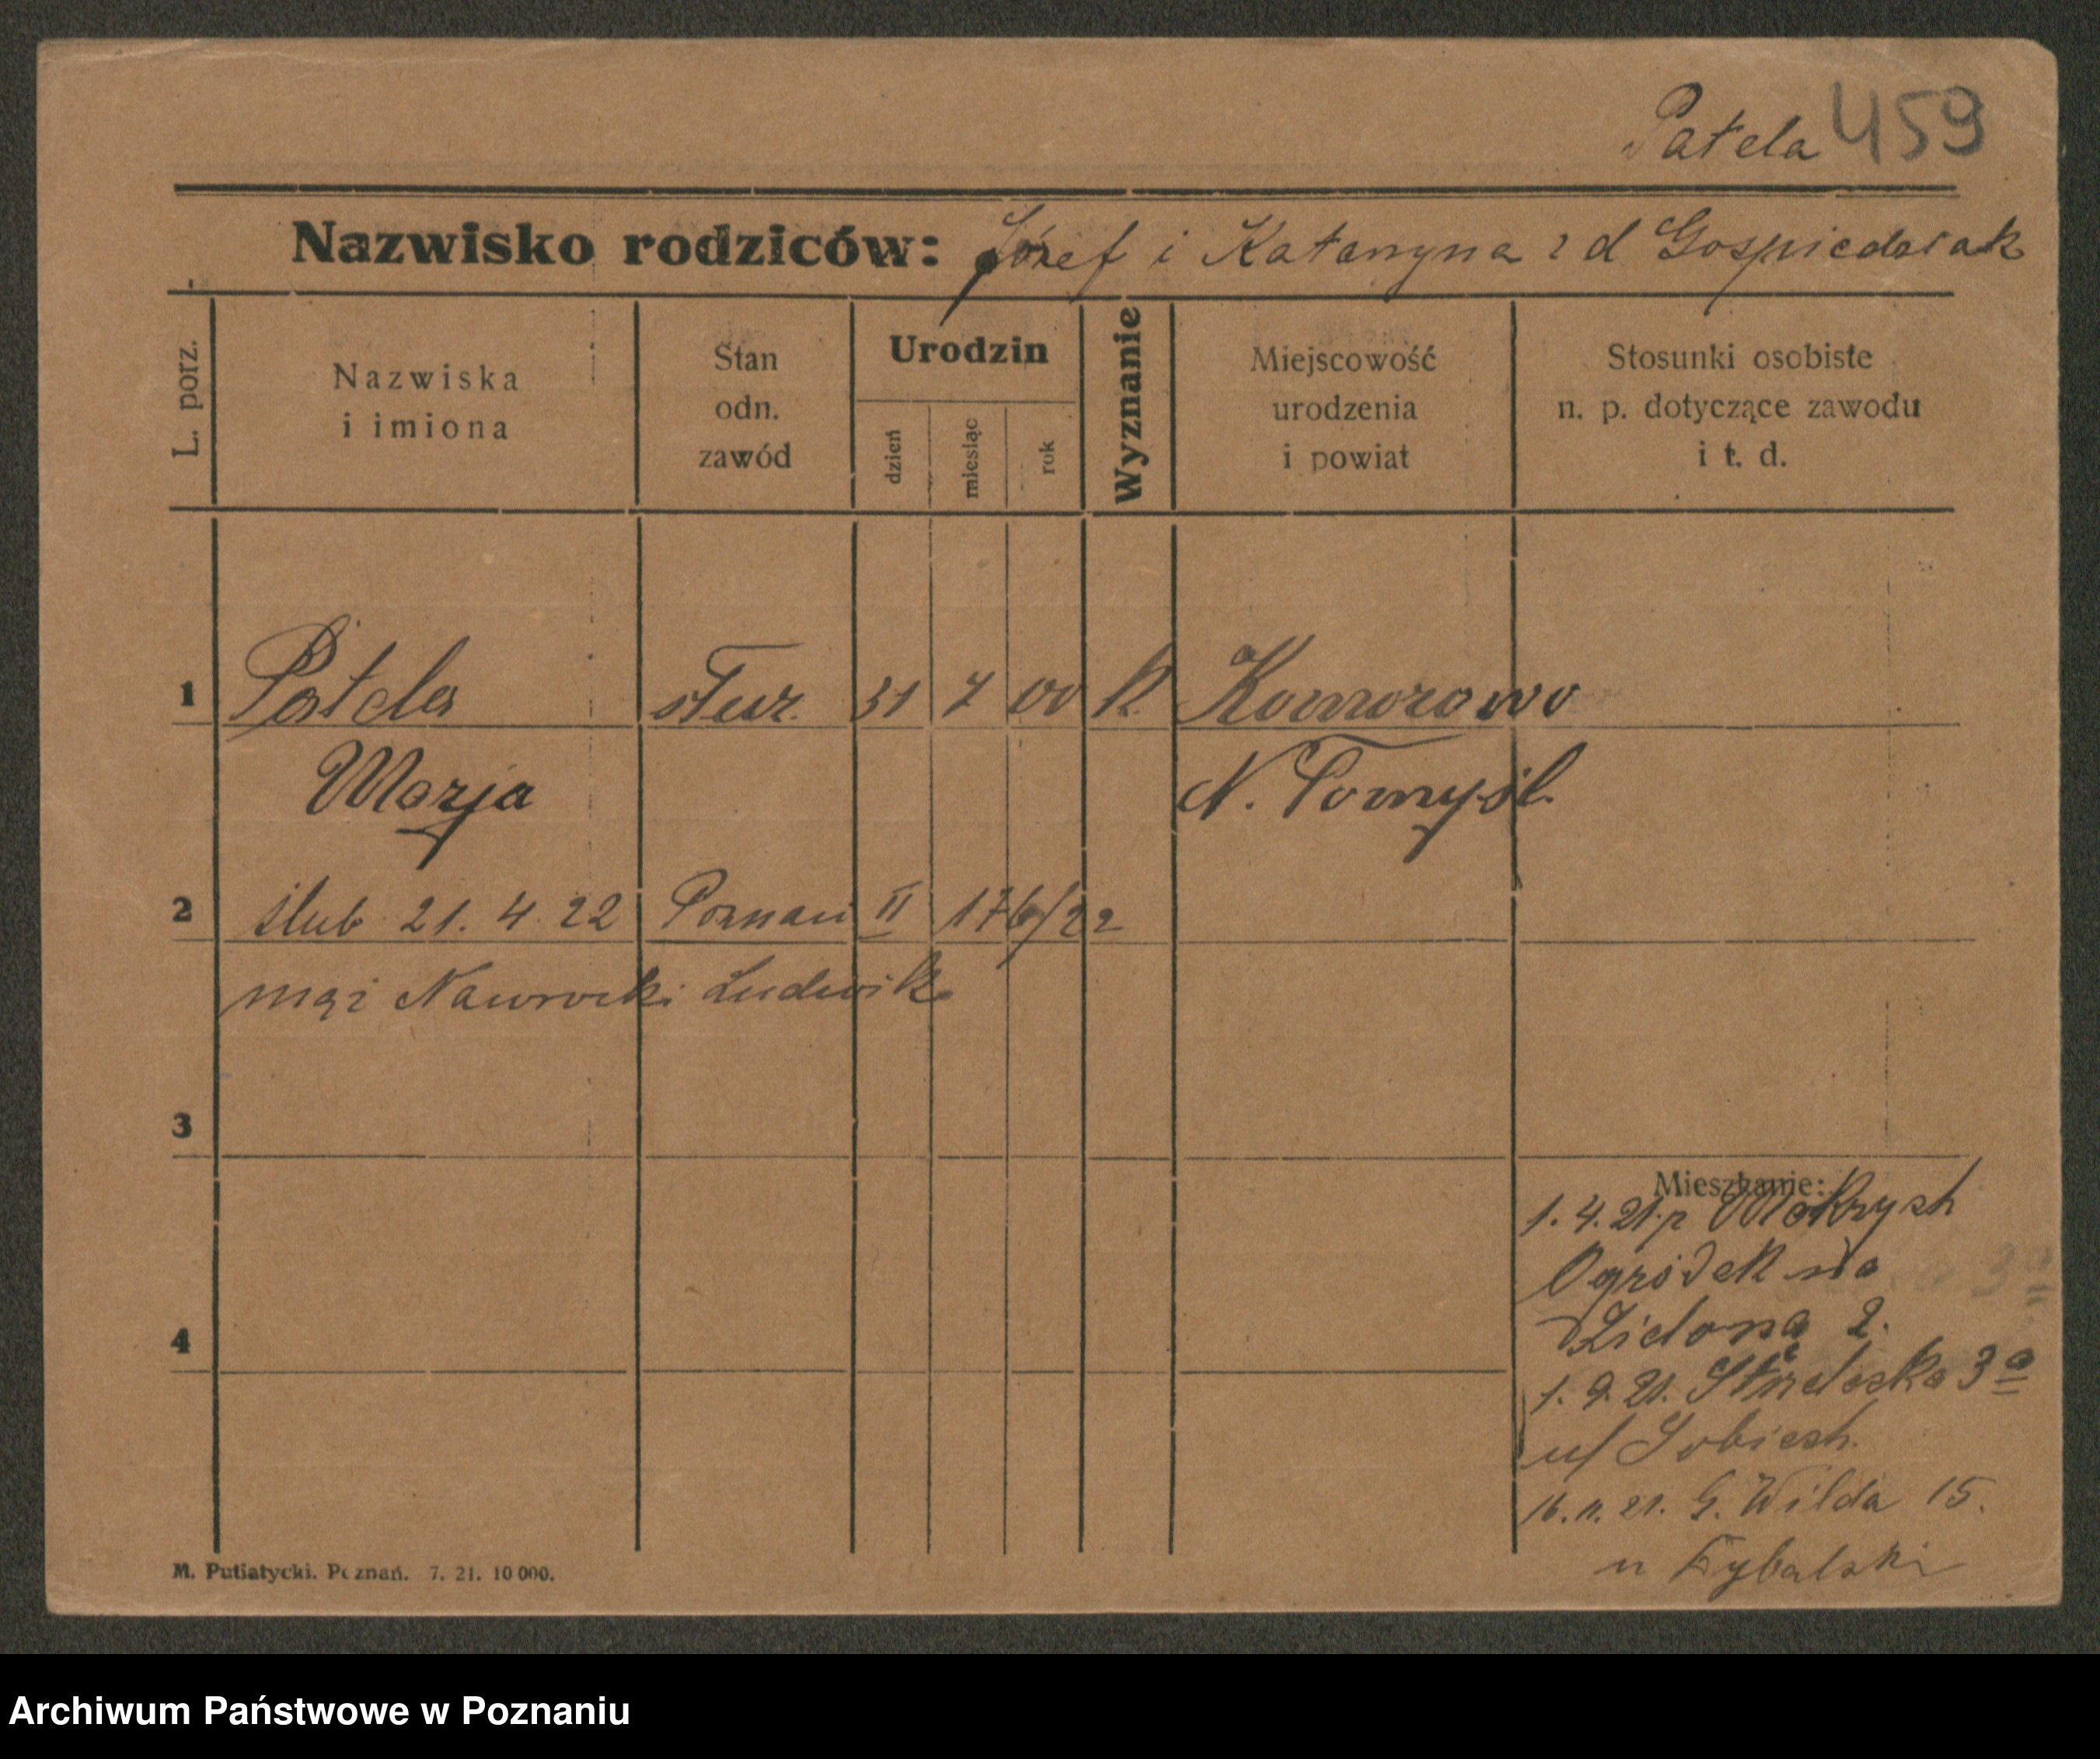 Patela 459
Nazwisko rodziców: Józef i Katarzyna z d Gospiedziak
L. porz.
Nazwiska
i imiona
Stan
odn.
zawód
Urodzin
dzień
miesiąc
rok
Wyznanie
Miejscowość
urodzenia
i powiat
Stosunki osobiste
n. p. dotyczące zawodu
i t. d.
1 Patela 31 7 00 k. Komorowo
Marja N. Tomyśl.
2 ślub 21. 4. 22 Poznań II 176/22
mąż Nawrocki Ludwik
3
Mieszkanie:
1. 4. 21. p
Ogródek na
Zielona 2.
4
1. 9. 21. Strzelecka 3a
u/ Sobiech.
16. 11. 21. G. Wilda 15.
u
M. Putiatycki. Poznań. 7. 21. 10 000.
Archiwum Państwowe w Poznaniu